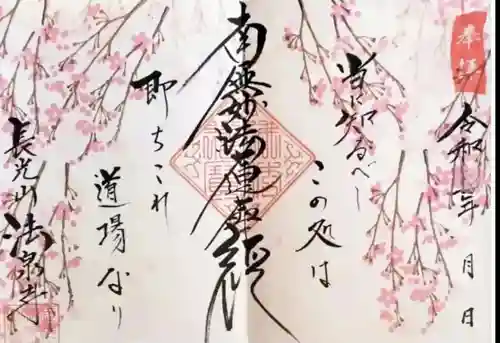 奉拝
令和 年 月 日
当に知るべし
この処は
南無妙法蓮華経
即ちこれ
道場なり
長光山
法泉寺